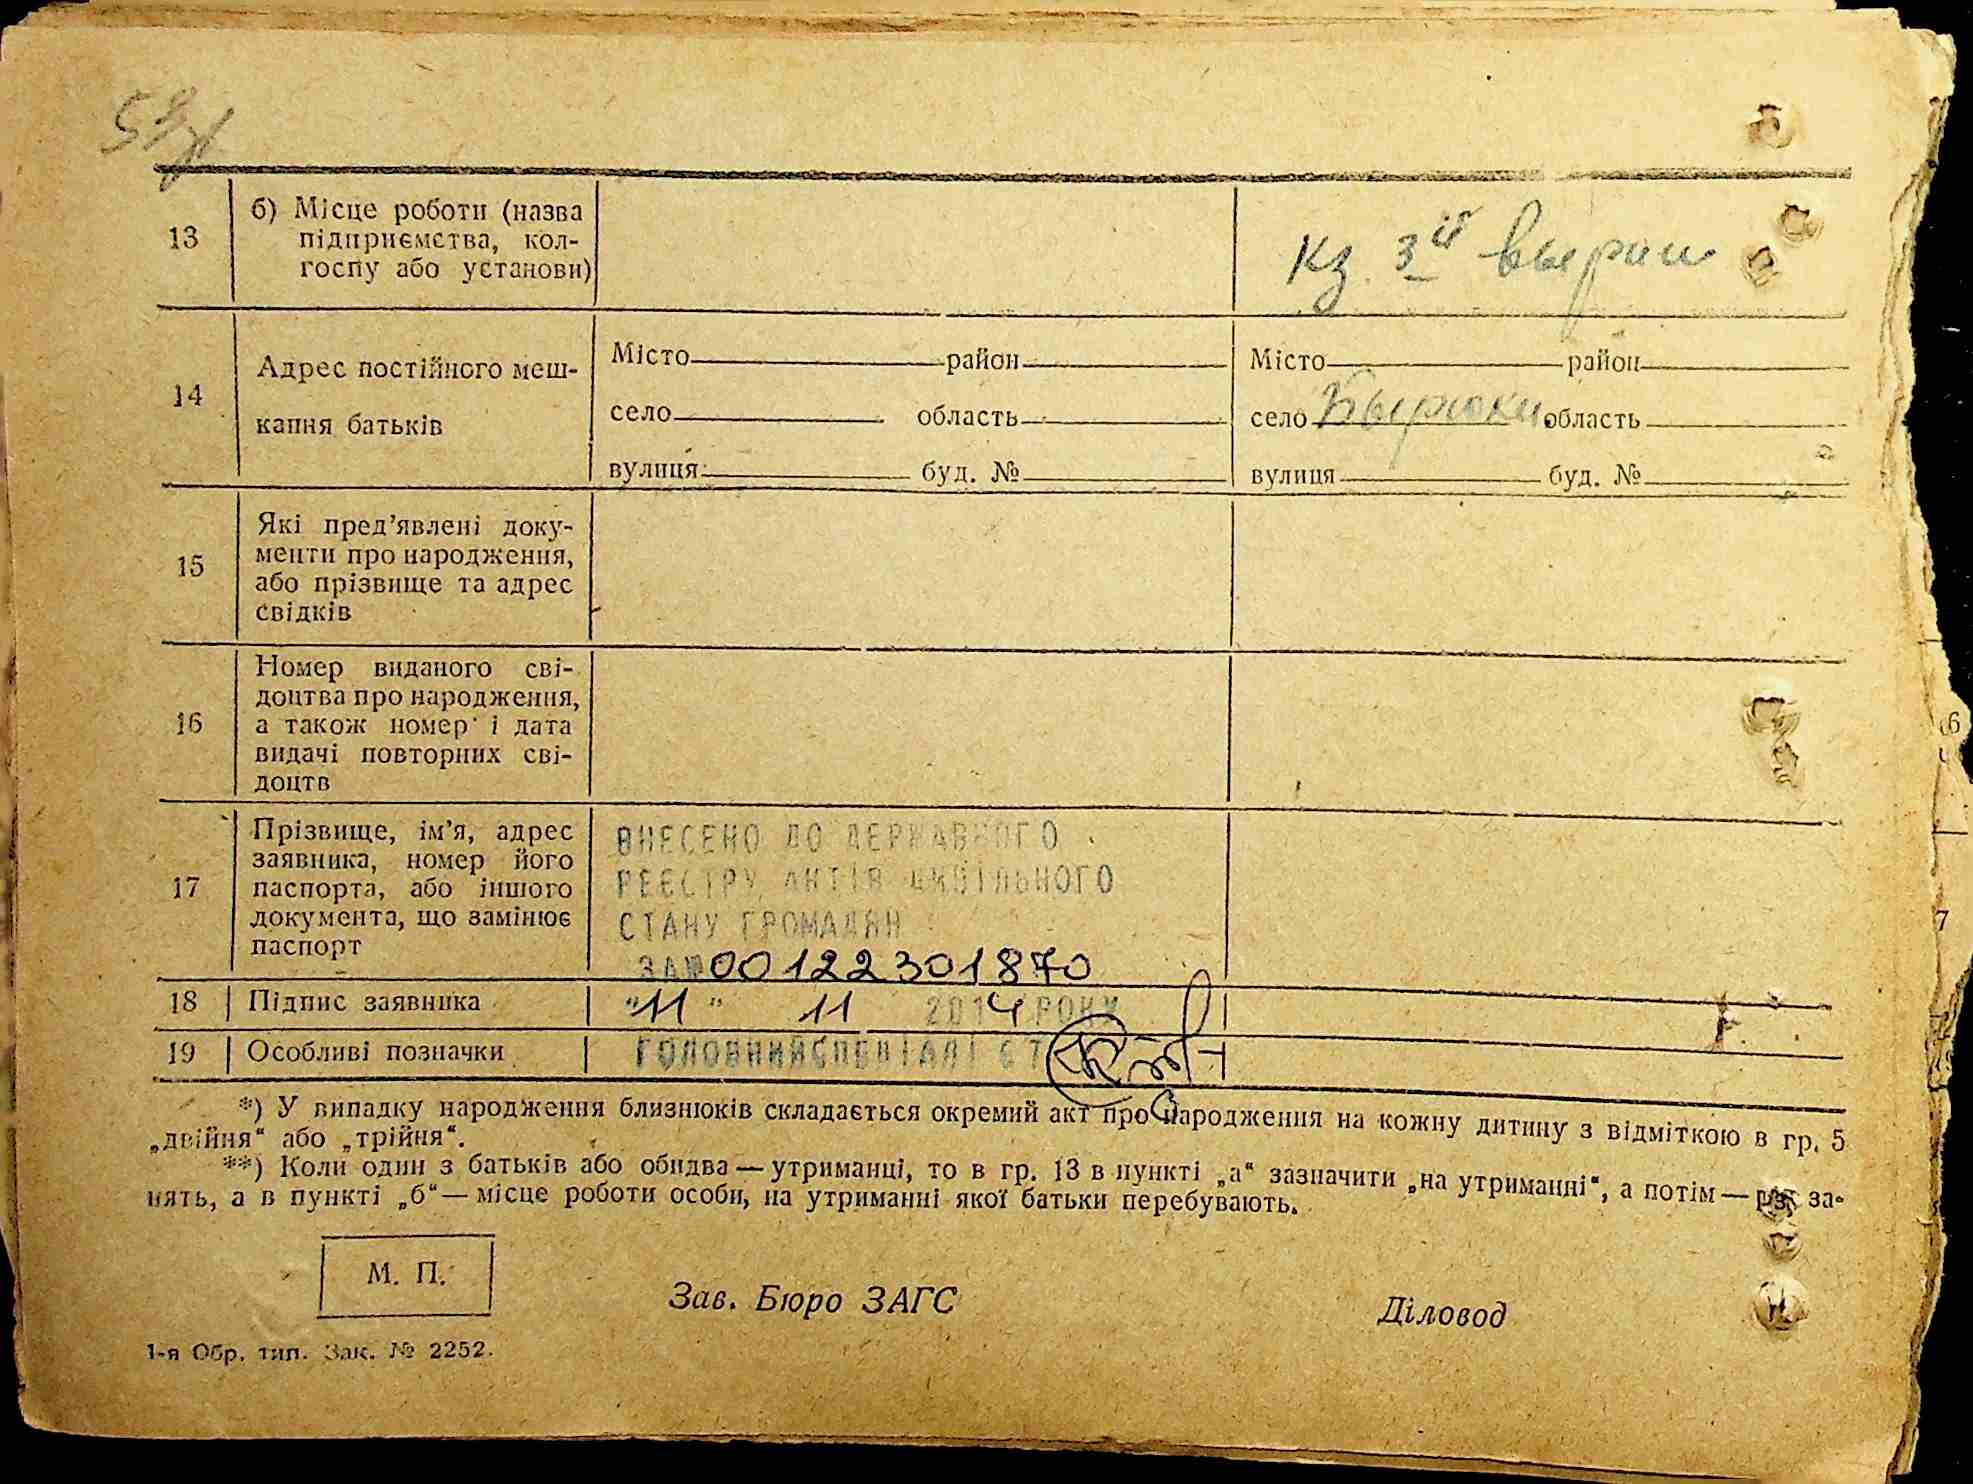 13
б) Місце роботи (назва
підприємства, кол-
госпу або установи)
кз. 3ій
14
Адрес постійного меш-
кання батьків
Місто район
село область
вулиця буд. №
Місто район
село область
вулиця буд. №
15
Які пред’явлені доку-
менти про народження,
або прізвище та адрес
свідків
16
Номер виданого сві-
доцтва про народження,
а також номер і дата
видачі повторних сві-
доцтв
17
Прізвище, ім’я, адрес
заявника, номер його
паспорта, або іншого
документа, що замінює
паспорт
ВНЕСЕНО ДО ДЕРЖАВНОГО
РЕЄСТРУ АКТІВ ЦИВІЛЬНОГО
СТАНУ ГРОМАДЯН
ЗА № 00122301870
18 Підпис заявника
"11" 11 2014 РОКУ
19 Особливі позначки
ГОЛОВНИЙ СПЕЦІАЛІСТ
*) У випадку народження близнюків складається окремий акт про народження на кожну дитину з відміткою в гр. 5
„двійня“ або „трійня“.
**) Коли один з батьків або обидва — утриманці, то в гр. 13 в пункті „а“ зазначити „на утриманні“, а потім — рід за-
нять, а в пункті „б“ — місце роботи особи, на утриманні якої батьки перебувають.
М. П.
Зав. Бюро ЗАГС
Діловод
1-я Обр. тип. Зак. № 2252.
6
7